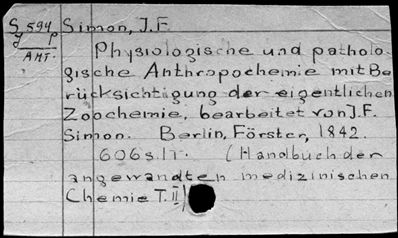 S 594 Simon, J.F.
y p
AMT. Physiologische und patholo-
gische Anthropochemie mit Be
rücksichtigung der eigentlichen
Zoochemie, bearbeitet von J.F.
Simon. Berlin, Förster, 1842.
606 s.
(Handbuch der
angewandten medizinischen
Chemie T. II)